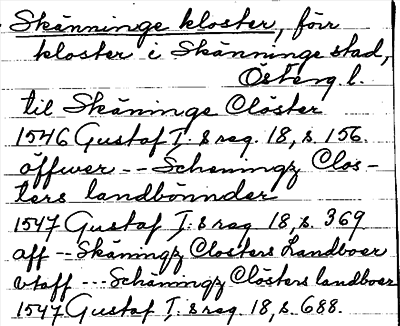 Skänninge kloster, förr
kloster i Skänninge stad,
Österg l.
til Skäninge Clöster
1546 Gustaf I:s reg. 18, s. 156.
öffwer -- Scheningz Clos-
ters landbönnder
1547 Gustaf I:s reg. 18, s. 369
aff -- Skäningz Closters Landboer
vtaff --- Schäningz Clösters landboer
1547 Gustaf I:s reg. 18, s. 688.